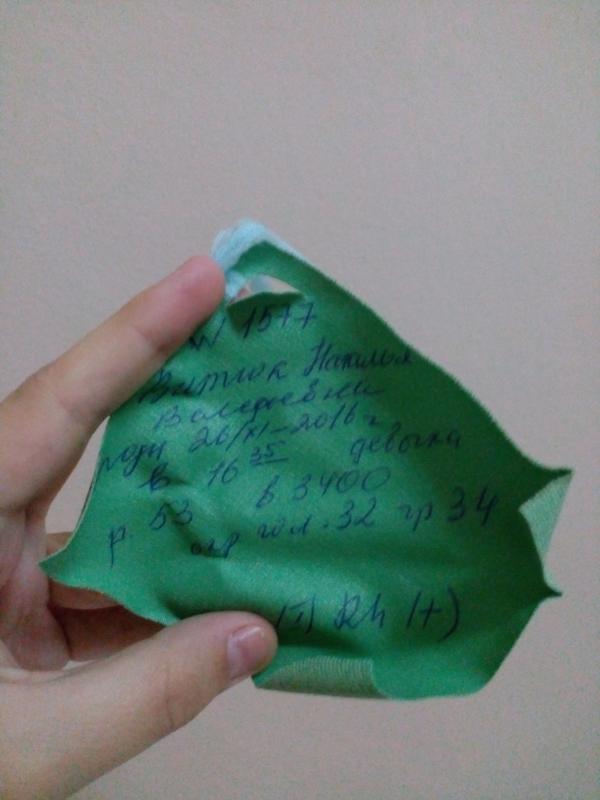 N 1577
Витюк Наталья
Валерьевна
роди 26/XI-2016 г
в 16 35 девочка
в 3400
р. 53
окр гол. 32 гр 34
(I) Rh (+)